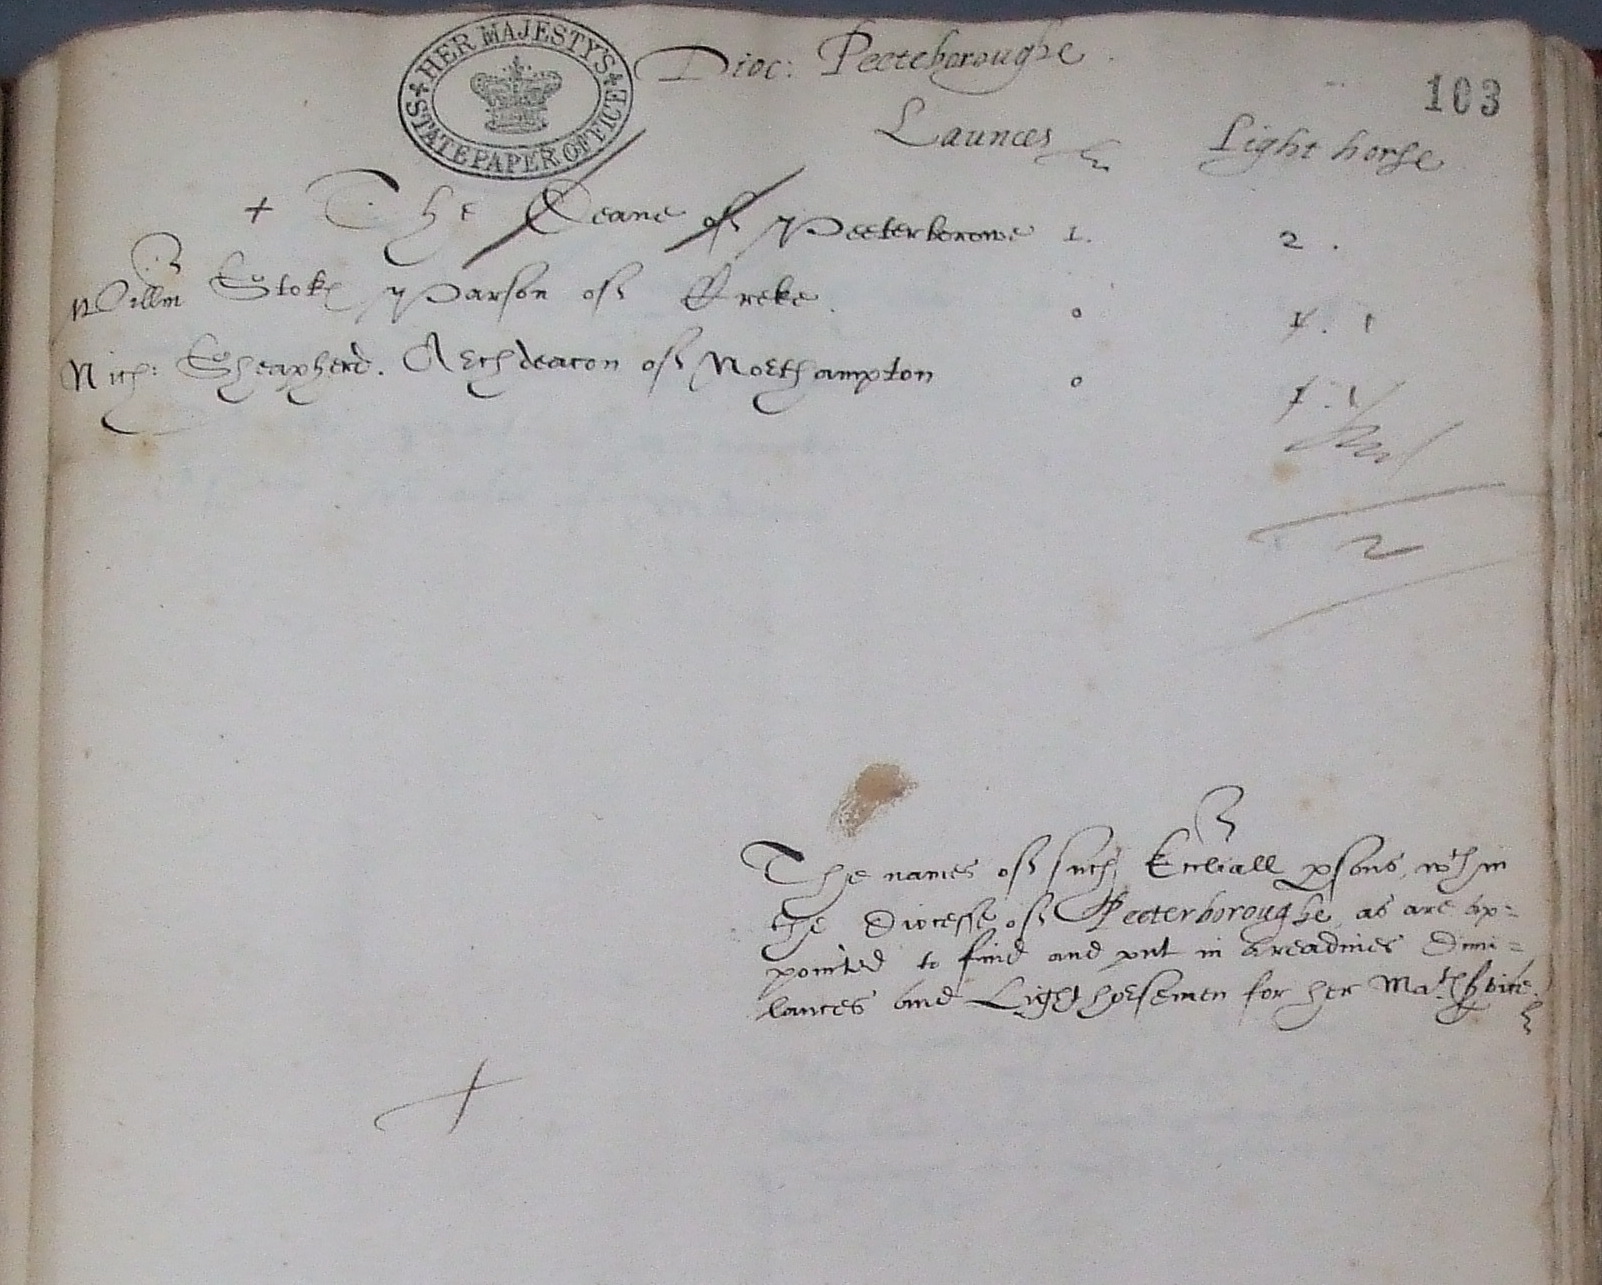 HER MAJESTY'S STATE PAPER OFFICE
Dioc: Peeteboroughe
103
Launces Light horse
+ The Deane of Peeterborowe 1. 2.
Willm Stok Parson of Creke. 0 1. 1
Nich: Sheapherd. Archdeacon of Northampton 0 1. 1
2
The names of such Eccliall psons wthin
the Diocesse of Peeterboroughe as are ap=
pointed to find and put in areadines Dimi=
lances and Light horsemen for her Mats svice.